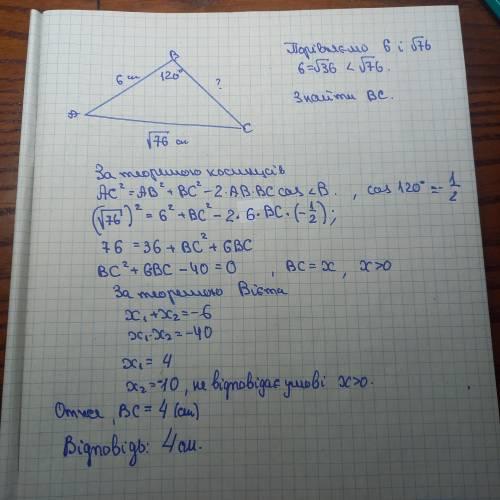 Порівняємо 6 і √76
6=√36 < √76.
Знайти BC.
B
6 см
120°
?
C
√76 см
За теоремою косинусів
AC² = AB² + BC² - 2·AB·BC cos ∠B. , cos 120° = -1/2
(√76)² = 6² + BC² - 2·6·BC·(-1/2);
76 = 36 + BC² + 6BC
BC² + 6BC - 40 = 0 , BC = x, x>0
За теоремою Вієта
x₁ + x₂ = -6
x₁·x₂ = -40
x₁ = 4
x₂ = -10, не відповідає умові x>0.
Отже, BC = 4 (см)
Відповідь: 4 см.